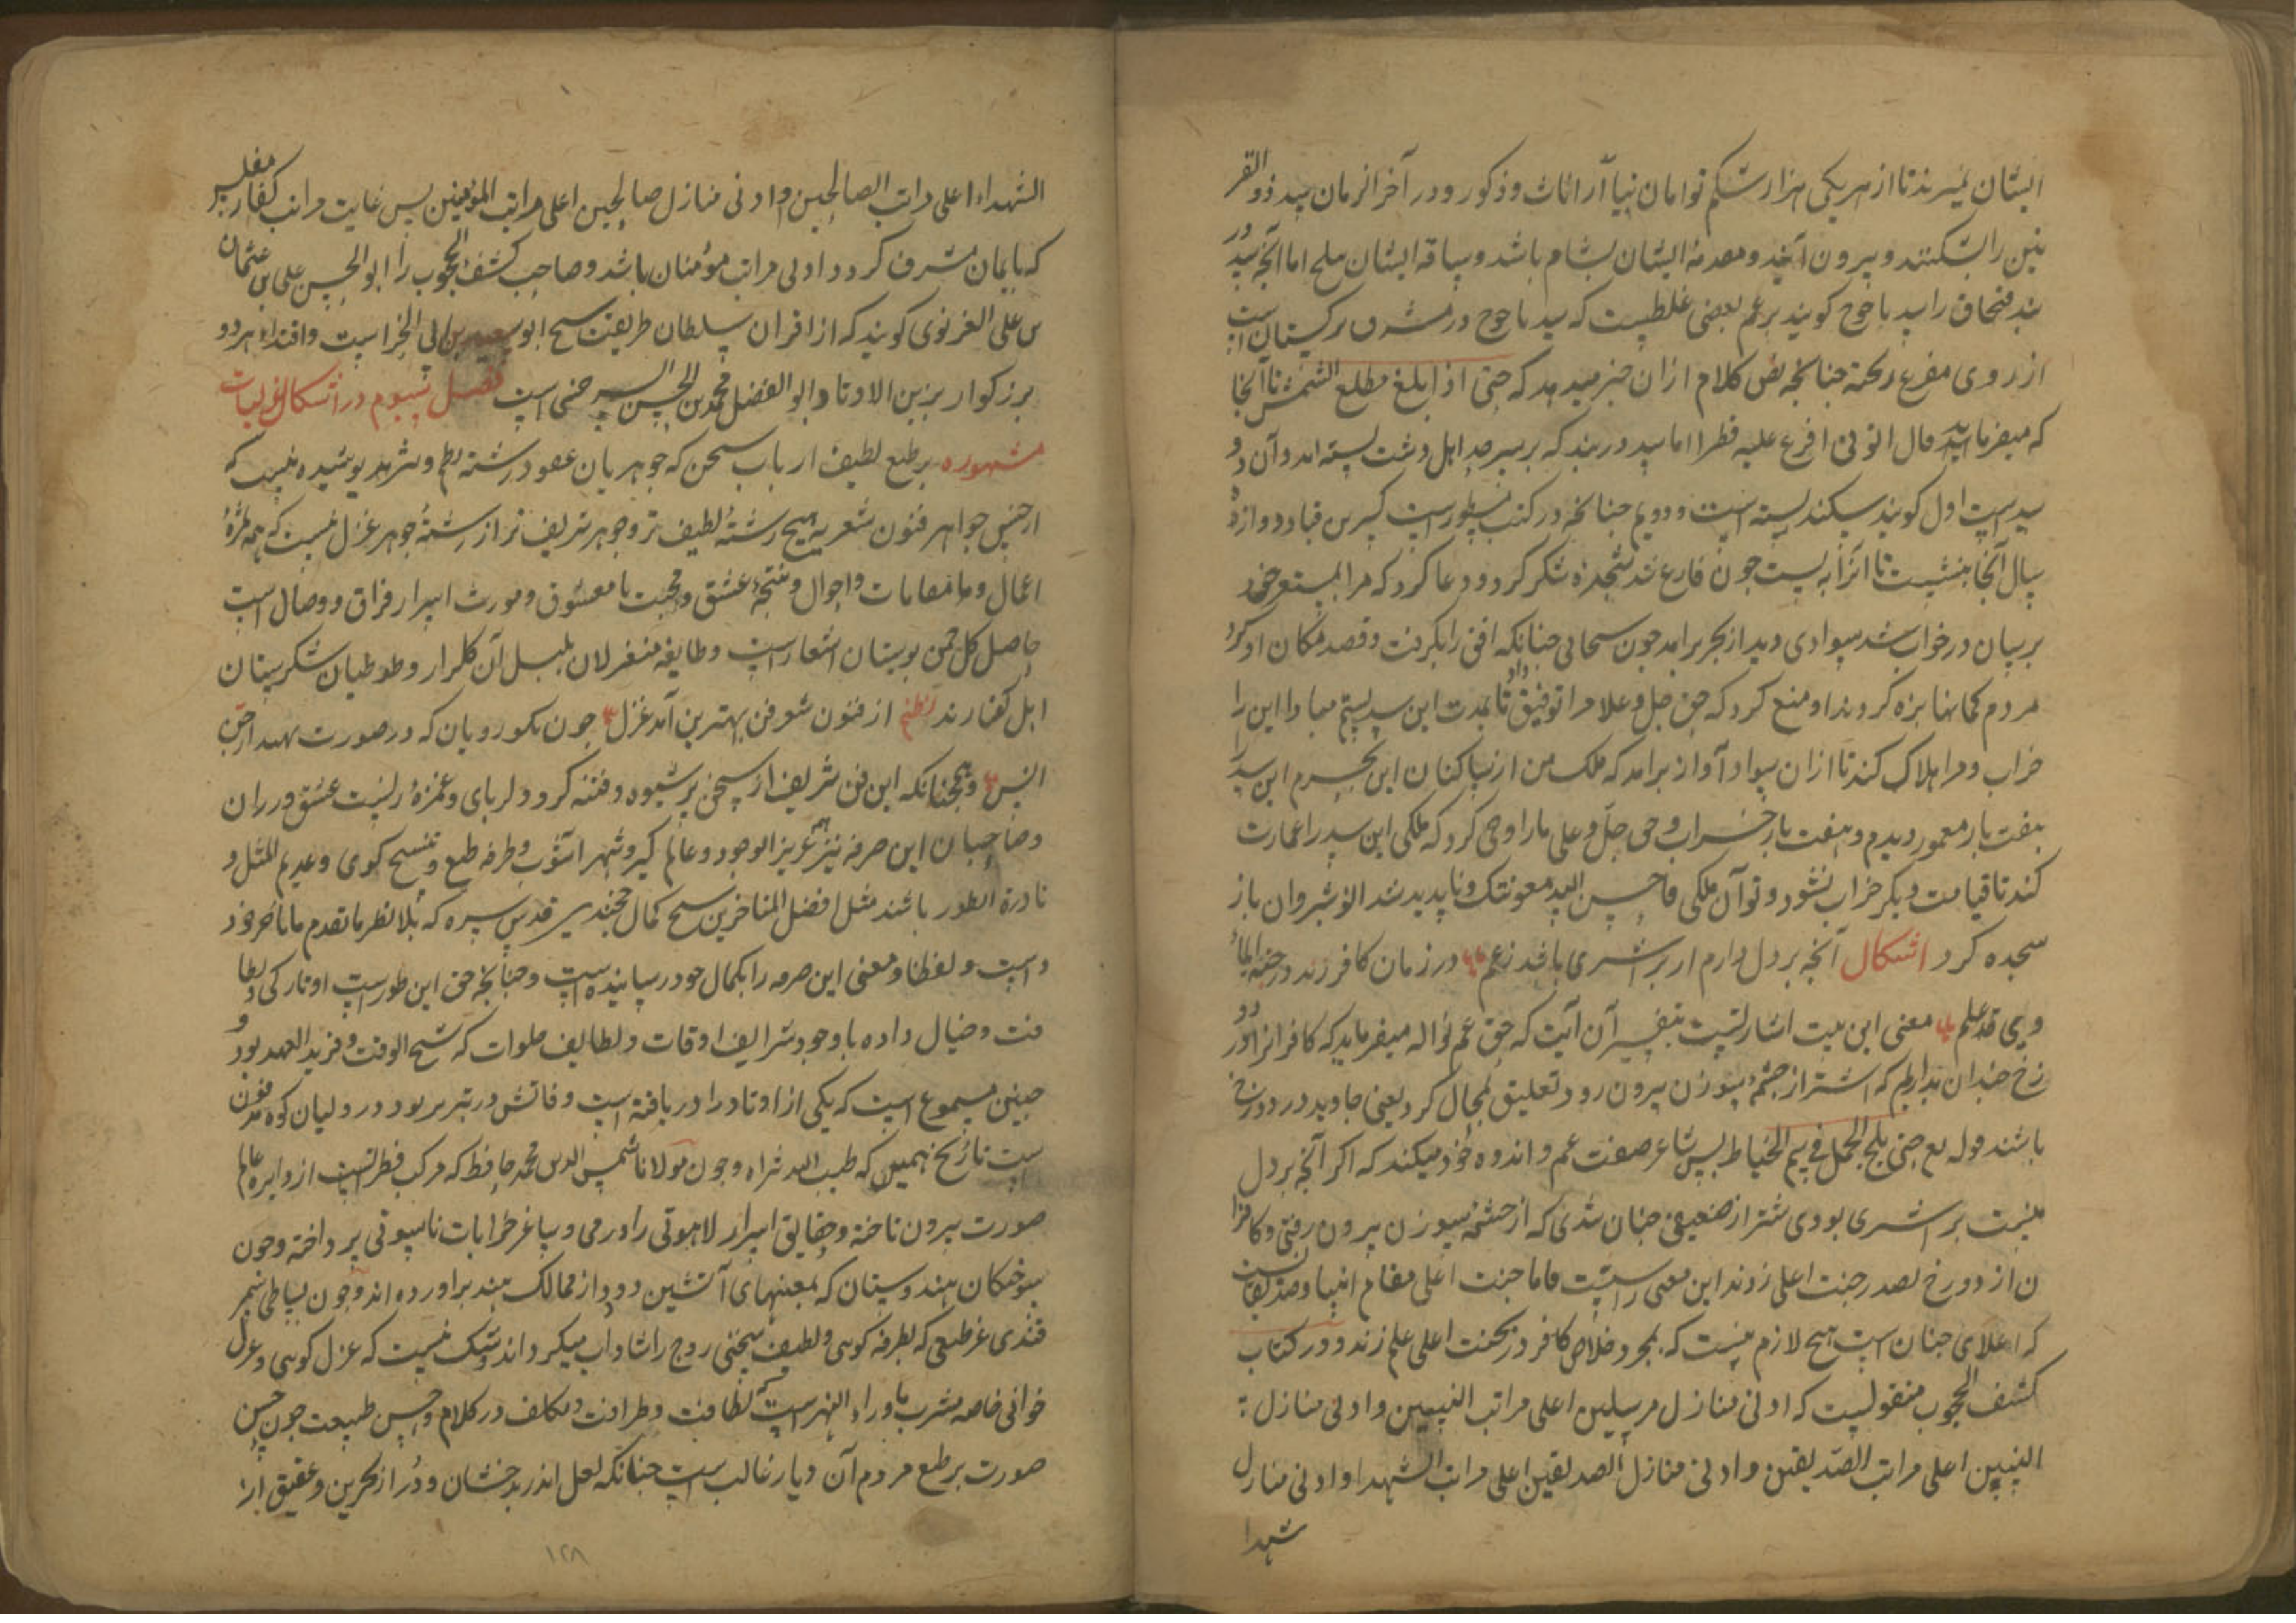 ایشان نمیرند تا از هر یکی هزار شکم توامان نیاآرد اناث و ذکور و در آخر الزمان سد ذو القر
نین را بشکنند و بیرون آیند و مقدمهٔ ایشان بشام باشد و ساقه ایشان بلخ اما آنچه سد در
بند قنجاق را سد یاجوج کویند بزعم بعضی غلطیست که سد یاجوج در مشرق ترکستان است
از روی مفرغ ریخته جنانچه نص کلام ازان خبر میدهد که حتی اذا بلغ مطلع الشمش تا آنجا
که میفرماید قال اتونی افرغ علیه قطرا اما سد دربند که بر سر حد اهل دشت بسته اند و آن دو
سد است اول کویند سکندر بسته است و دویم جنانچه در کتب مسطور است کسری قباد دوازده
سال آنجا بنشست تا آنرا به بست جون فارغ شد سجده شکر کرد و دعا کرد که مرا
بر سان در خواب شد سوادی دید از بحر برآمد جون سحابی جنانکه افق را بکرفت و قصد مکان او کرد
مردم کمانها بزه کردند او منع کرد که حق جل و علا مرا توفیق داد تا بمدت این سد بستم مبادا این را
خراب و مرا هلاک کند تا ازان سواد آواز برامد که ملک من از ساکنان این بحرم این سد را
هفت بار معمور دیدم و هفت بار خراب و حق جل و علی ما را وحی کرد که ملکی این سد را عمارت
کند تا قیامت دیکر خراب نشود و تو آن ملکی فاحسن الله معونتک و ناپدید شد انوشیروان باز
سجده کرد اشکال آنچه بر دل دارم ار بر اشتری باشد زغم در زمان کافر زند در جنة الماٴ
وی قد علم معنی این بیت اشارتیست بتفسیر آن آیت که حق عم نواله میفرماید که کافرانرا از دو
زخ جندان بداریم که اشتر از جشمه سوزن بیرون رود تعلیق بمحال کرد یعنی جاوید در دوزخ
باشند قوله تع حتی یلج الجمل فی سم الخیاط پس شاعر صفت غم و اندوه خود میکند که اکر آنچه بر دل
منست بر اشتری بودی شتر از ضعیفی جنان شدی که از جشمه سوزن بیرون رفتی و کافرا
ن از دوزخ بصدر جنت اعلی زدند این معنی راستست فاما جنت اعلی مقام انبیا و صدیقانست
که اعلای جنان است هیج لازم نیست که بمجرد خلاص کافر در بجنت اعلی علم زند و در کتاب
کشف المحجوب منقولست که ادنی منازل مرسلین اعلی مراتب النبیین و ادنی منازل
النبیین اعلی مراتب الصدیقین و ادنی منازل الصدیقین اعلی مراتب الشهدا و ادنی منازل
شهدا
الشهداء اعلی مراتب الصالحین و ادنی منازل صالحین اعلی مراتب المؤمنین پس غایت مراتب کفار مفلس
که بایمان مشرف کردد ادنی مراتب مؤمنان باشد و صاحب کشف المحجوب را ابو الحسن علی بن عثمان
بن علی الغزنوی کویند که از اقران سلطان طریقت شیخ ابو سعید بن ابی الخیر است و اقتداء هر دو
بزرکوار بزین الاوتاد ابو الفضل محمد بن الحسن السرخسی است فصل سیوم در اشکال غزلیات
مشهوره بر طبع لطیف ارباب سخن که جوهریان عقود رشته نظم و نثرند پوشیده نیست که
از جنس جواهر فنون شعریه هیج رشتهٔ لطیف تر و جوهر شریف تر از رشتهٔ جوهر غزل نیست که همه ثمرهٔ
اعمال و مقامات و احوال و نتیجه عشق و محبت با معشوق و مورث اسرار فراق و وصال است
حاصل کل جمن بوستان اشعار است و طایفه متغزلان بلبل آن کلزار و طوطیان شکرستان
اهل کفتارند نظم از فنون شعر فن بهترین آمد غزل جون نکورویان که در صورت بهند از
انس و همجنانکه این فن شریف از سخن پر شیوه و فتنه کر و دلربای و غمزهٔ زنیست عشق وران
و صاحبان این حرفه نیز عزیز الوجود و عالم کیر و شهر آشوب و طرفه طبع و کوی و عدیم المثل و
نادرة الطور باشند مثل افضل المتاخرین شیخ کمال خجندی قدس سره که بلا نظر ما تقدم ما تاخر خود
است و لفظا و معنی این حرفه را بکمال خود رسانیده است و جنانچه حق این طور است او تارکی و لطا
فت و خیال داده باوجود شرایف اوقات و لطایف خلوات که شیخ الوقت و فرید العهد بود و
جنین مسموع است که یکی از اوتاد را دریافته است و وفاتش در تبریز بود در ولیان کوه مدفون
ست تاریخ همین که طیب الله ثراه و جون مولانا شمس الدین محمد حافظ که مرکب فطرتست از دایره عالم
صورت بیرون تاخته و حقایق اسرار لاهوتی را در می و ساغر خرابات ناسوتی پرداخته و جون
سوختکان هندوستان که بمعنیهای آتشین دود از ممالک هند برآورده اند و جون بساطی سمر
قندی غر طبعی که بطرفه کویی و لطیف سخنی روح را شاداب میکرداند و شک نیست که غزل کویی و غزل
خوانی خاصه مشرب ماوراء النهر است که لطافت و ظرافت و تکلف در کلام و حسن طبیعت جون حسن
صورت بر طبع مردم آن دیار غالب است جنانکه لعل اندر بدخشان و در از بحرین و عقیق از
۱۲۸